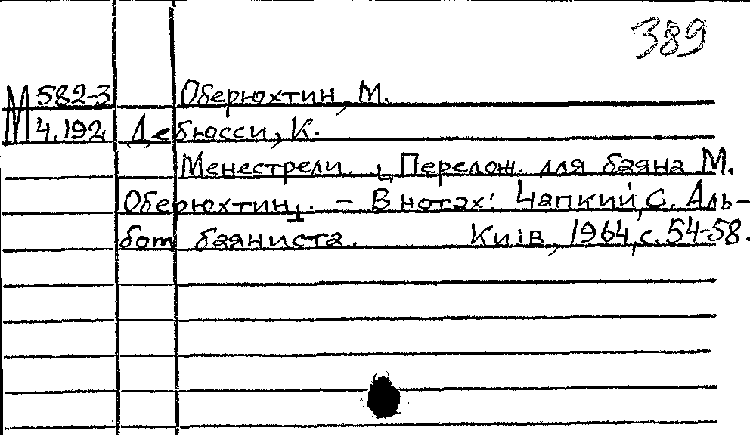 389
М 582-3 Оберюхтин, М.
4.192 Дебюсси, К.
Менестрели. Перелож. для баяна М.
Оберюхтин. - В нотах: Чапкий, С. Аль-
бом баяниста. Київ, 1964, с. 54-58.